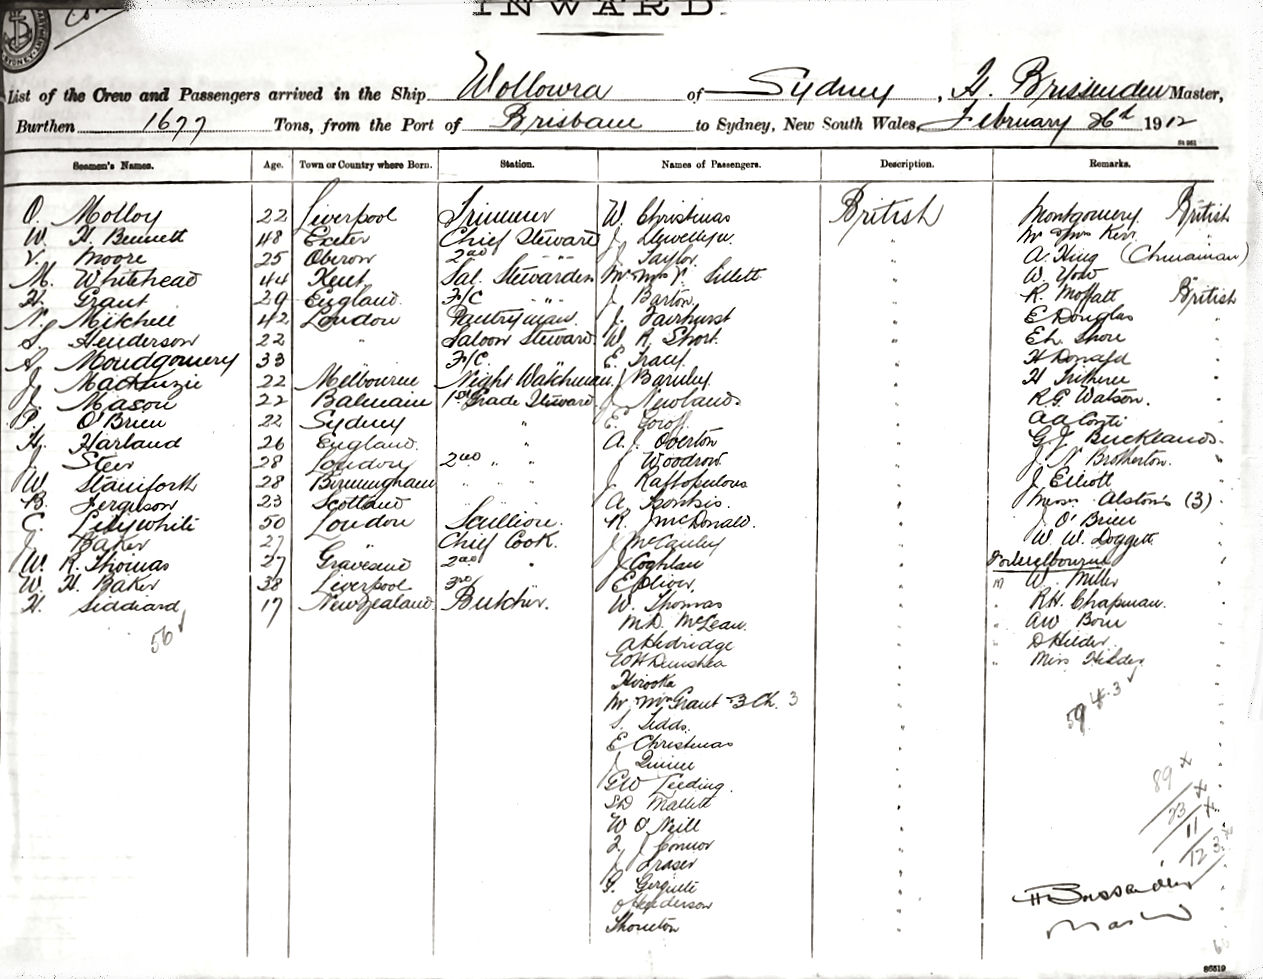 INWARD.
List of the Crew and Passengers arrived in the Ship Wollowra of Sydney, H. Brissenden Master,
Burthen 1677 Tons, from the Port of Brisbane to Sydney, New South Wales, February 26th 1912
Seamen's Names. Age. Town or Country where Born. Station. Names of Passengers. Description. Remarks.
O. Molloy 22 Liverpool Trimmer W. Christmas British Montgomery British
W. H. Bennett 48 Exeter Chief Steward J Llewellyn " Mr & Mrs Kerr
V. Moore 25 Oberon 2nd " J Taylor " A. King (Chinaman)
M. Whitehead 44 Kent Sal. Stewardess Mr & Mrs V. Sillett " W. York
H. Grant 29 England F/C " " J Barton " R. Moffatt British
N. Mitchell 42 London Pantryman J. Fairhurst " E Douglas "
S. Henderson 22 " Saloon Steward W R Short " E L Shore "
A. Moudgomery 33 F/C. " E. Tracey " H Donald "
J. MacKenzie 22 Melbourne Night Watchman J Barnley " H
J. Mason 22 Balmain 1st Grade Steward J Newlands " R G Watson. "
P. O'Brien 22 Sydney " E. " A A Conti "
H. Harland 26 England " A. J. Overton " G J Bucklands "
J. Steer 28 London 2nd " " J Woodrow " J. N Brotherton "
W Staniforth 28 Birmingham " " " Raftopulous " J Elliott "
B. Ferguson 23 Scotland A " Misses Alston's (3) "
C. Lillywhite 50 London Scullion. R. McDonald. " J O'Brien "
J Baker 27 " Chief Cook. J McCauley " W W. Doggett "
W. R. Thomas 27 Gravesend 2nd " J Coghlan " For Melbourne "
W. H. Baker 38 Liverpool 3rd " E Oliver " W. Miller "
H. Siddiard 17 New Zealand Butcher. W. Thomas " R H. Chapman. "
56 M. D. McLean. " A W Born "
A Hedridge " D Hilder "
W H " Miss Hilder "
Hirooka "
Mr & Mrs Grant & 3 Ch. 3 " 59 43
S. Tidds. "
E Christmas "
J Quinn " 89
G W Leeding. " 23
S D Mallett " 11
W O'Neill " 123
J Connor "
J Fraser "
G. "
O Hederson " H Brissenden
Thornton " Master
86519